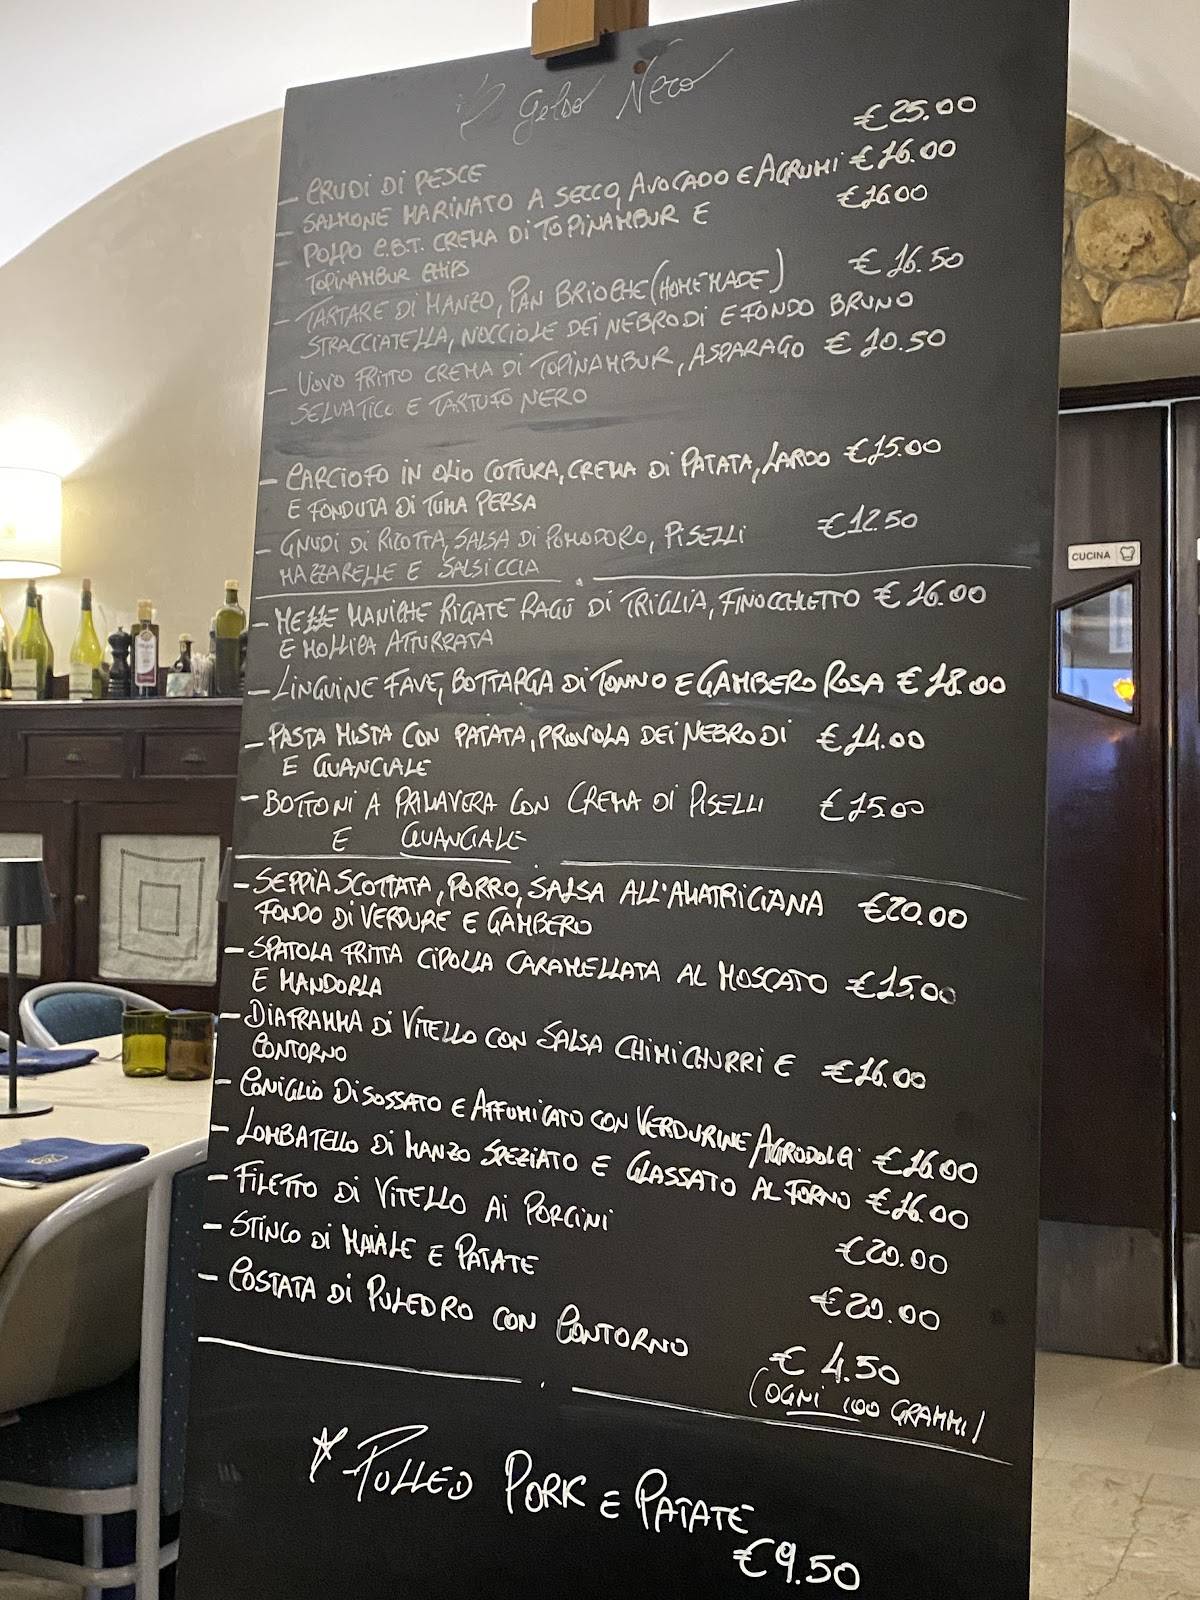 il Gelso Nero
€25.00
- CRUDI DI PESCE
- SALMONE MARINATO A SECCO, AVOCADO E AGRUMI €16.00
- POLPO C.B.T. CREMA DI TOPINAMBUR E €16.00
TOPINAMBUR CHIPS
- TARTARE DI MANZO, PAN BRIOCHE (HOMEMADE) €16.50
STRACCIATELLA, NOCCIOLE DEI NEBRODI E FONDO BRUNO
- UOVO FRITTO CREMA DI TOPINAMBUR, ASPARAGO €10.50
SELVATICO E TARTUFO NERO
- CARCIOFO IN OLIO COTTURA, CREMA DI PATATA, LARDO €15.00
E FONDUTA DI TUMA PERSA
- GNUDI DI RICOTTA, SALSA DI POMODORO, PISELLI €12.50
MAZZARELLE E SALSICCIA
- MEZZE MANICHE RIGATE RAGÙ DI TRIGLIA, FINOCCHIETTO €16.00
E MOLLICA ATTURRATA
- LINGUINE FAVE, BOTTARGA DI TONNO E GAMBERO ROSA €18.00
- PASTA MISTA CON PATATA, PROVOLA DEI NEBRODI €14.00
E GUANCIALE
- BOTTONI A PRIMAVERA CON CREMA DI PISELLI €15.00
E GUANCIALE
- SEPPIA SCOTTATA, PORRO, SALSA ALL'AMATRICIANA €20.00
FONDO DI VERDURE E GAMBERO
- SPATOLA FRITTA CIPOLLA CARAMELLATA AL MOSCATO €15.00
E MANDORLA
- DIAFRAMMA DI VITELLO CON SALSA CHIMICHURRI E €16.00
CONTORNO
- CONIGLIO DISOSSATO E AFFUMICATO CON VERDURINE AGRODOLCI €16.00
- LOMBATELLO DI MANZO SPEZIATO E GLASSATO AL FORNO €16.00
- FILETTO DI VITELLO AI PORCINI €20.00
- STINCO DI MAIALE E PATATE €20.00
- COSTATA DI PULEDRO CON CONTORNO €4.50
(OGNI 100 GRAMMI)
* PULLED PORK E PATATE
€9.50
CUCINA